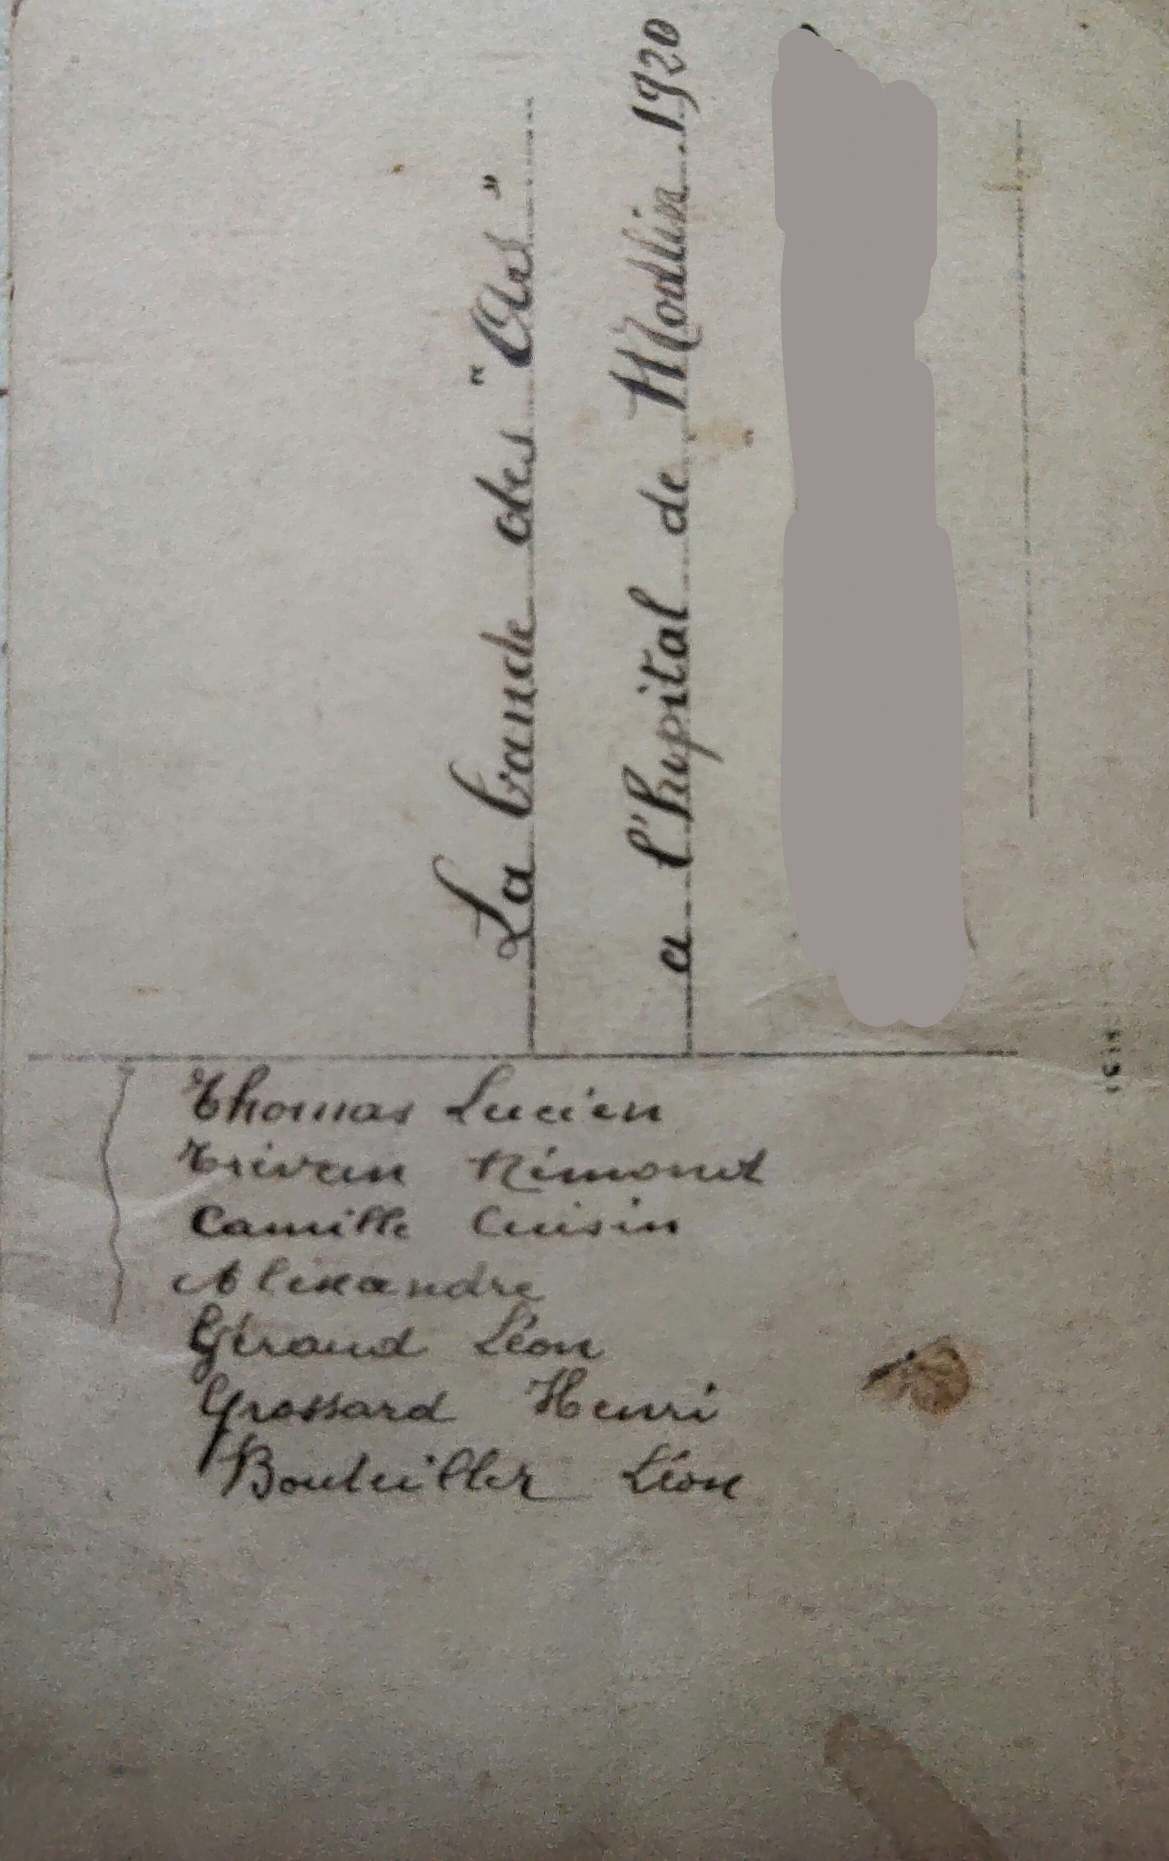 La bande des "As"
a l'hopital de Modlin. 1920
Thomas Lucien
Trivein Rémond
Camille Cuisin
Alexandre
Géraud Léon
Grossard Henri
Bouteiller Léon